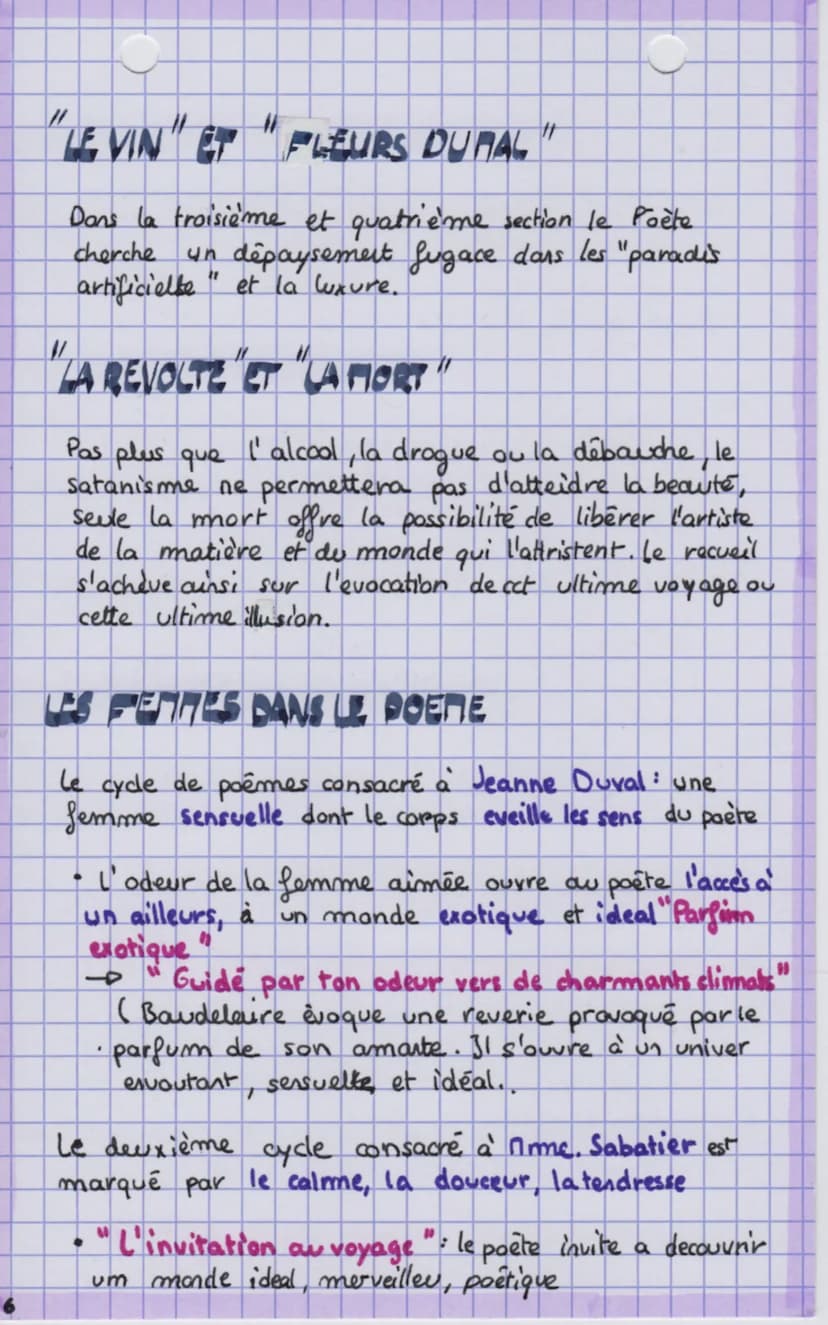 "LE VIN" ET "FLEURS DU MAL"
Dans la troisième et quatrième section le Poète
cherche un dépaysement fugace dans les "paradis
artificielle" et la luxure.
"LA REVOLTE" ET "LA MORT"
Pas plus que l'alcool, la drogue ou la débauche, le
satanisme ne permettera pas d'atteidre la beauté,
seule la mort offre la possibilité de libérer l'artiste
de la matière et du monde qui l'attristent. Le recueil
s'achève ainsi sur l'evocation de cet ultime voyage ou
cette ultime illusion.
LES FEMMES DANS LE POEME
Le cycle de poèmes consacré à Jeanne Duval : une
femme sensuelle dont le corps eveille les sens du poète
• L'odeur de la femme aimée ouvre au poète l'accès à
un ailleurs, à un monde exotique et ideal "Parfum
exotique"
→ "Guidé par ton odeur vers de charmants climats"
( Baudelaire évoque une reverie provoqué par le
parfum de son amante. Il s'ouvre à un univer
envoutant, sensuelle et idéal..
Le deuxième cycle consacré à Mme. Sabatier est
marqué par le calme, la douceur, la tendresse
• "L'invitation au voyage" : le poète invite a decouvrir
um monde ideal, merveilleu, poétique
6